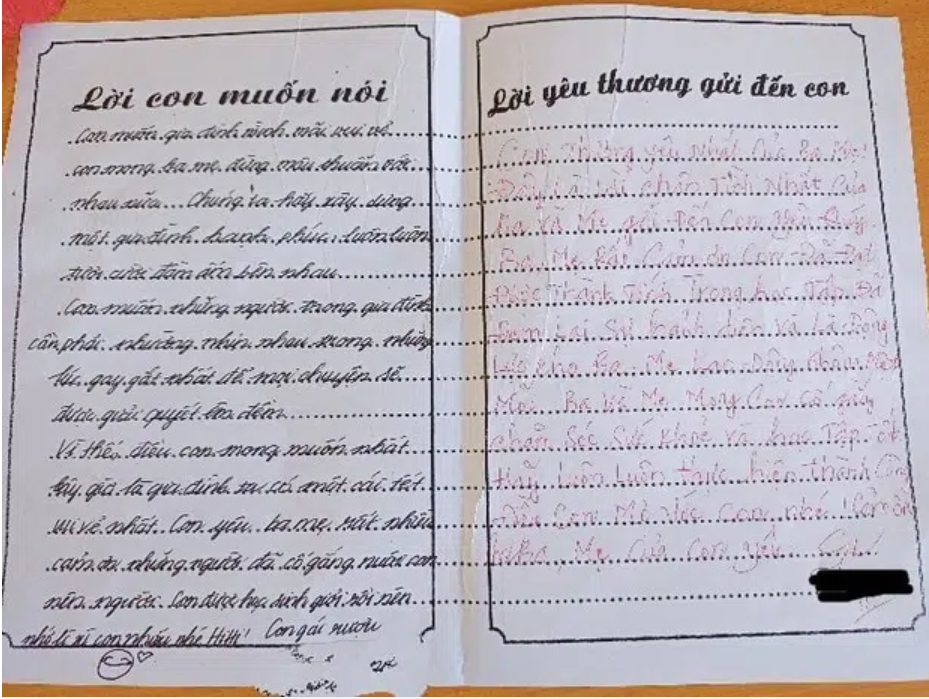 Lời con muốn nói
Con muốn gia đình mình mãi vui vẻ
con mong ba mẹ đừng mâu thuẫn với
nhau nữa... Chúng ta hãy xây dựng
một gia đình hạnh phúc, luôn luôn
tươi cười đầm ấm bên nhau
Con muốn những người trong gia đình
cần phải nhường nhịn nhau trong những
lúc gay gắt nhất để mọi chuyện sẽ
được giải quyết êm đềm
Vì thế, điều con mong muốn nhất
bây giờ là gia đình ta có một cái tết
vui vẻ nhất. Con yêu ba mẹ rất nhiều
cảm ơn những người đã cố gắng nuôi con
nên người. Con được học sinh giỏi rồi nên
nhớ lì xì con nhiều nhé HiHi! Con gái rượu
Lời yêu thương gửi đến con
Con Thương yêu Nhất Của Ba Mẹ!
Đây Là Lời chân Tình Nhất Của
Ba và Mẹ gửi Đến Con Yêu Quý
Ba Mẹ Rất Cảm ơn Con Đã Đạt
Được Thành Tích Trong học Tập Đã
Đem Lại Sự hãnh diện và Là Động
Lực cho Ba Mẹ Lao Động
Mỏi Ba Và Mẹ Mong Con cố gắng
chăm Sóc Sức Khoẻ và học Tập tốt
Hãy luôn Luôn thực hiện thành Công
Điều Con Mơ Ước Con nhé!
Ba Mẹ Của Con yêu